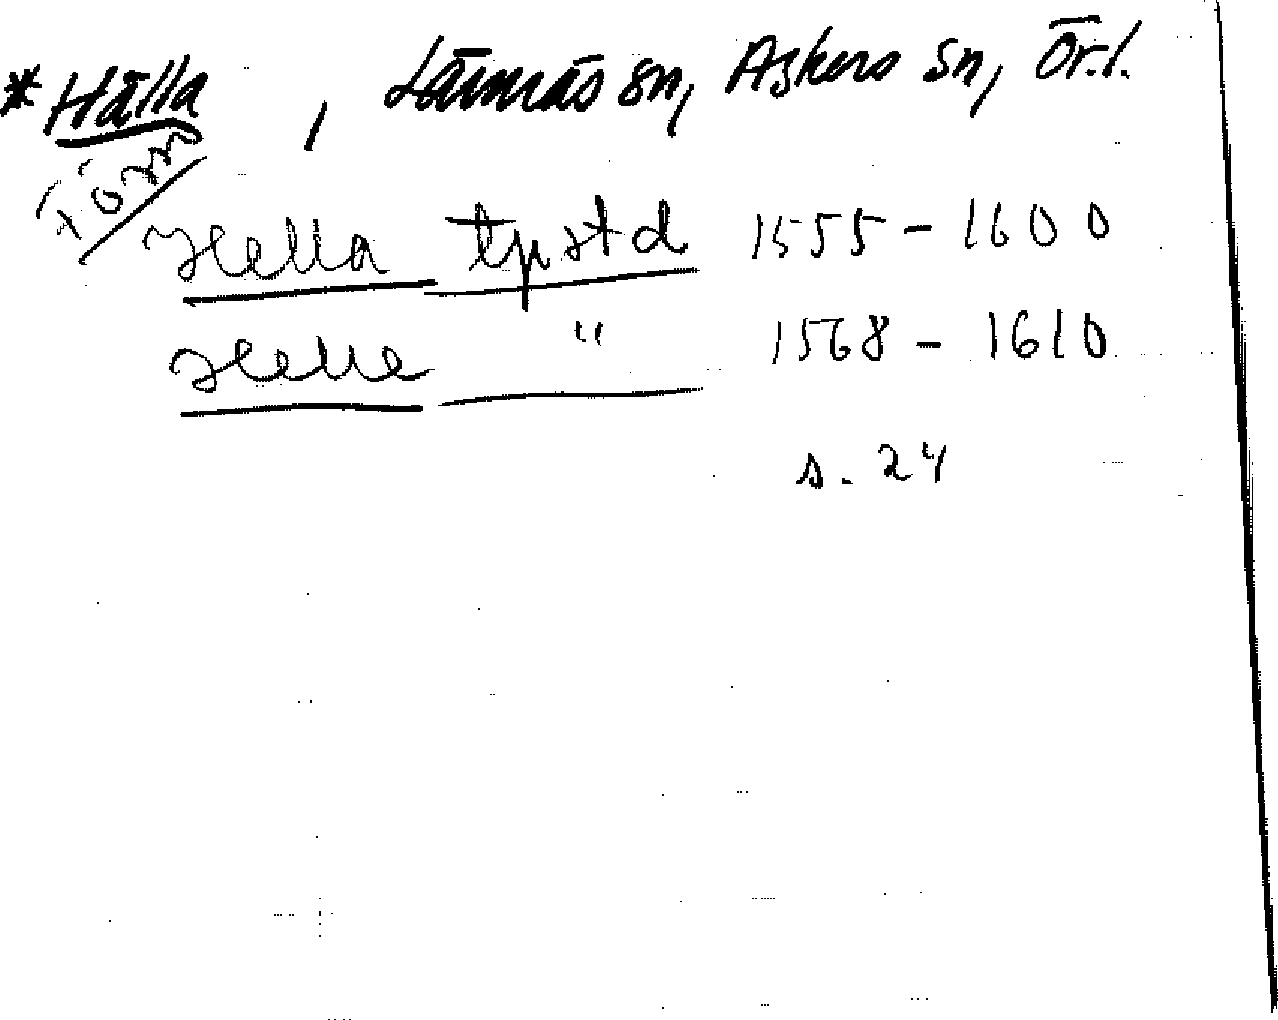 * Hälla , Lännäs sn, Askers sn, Ör.l.
Hella tpstd 1555-1600
Helle " 1568-1610
s. 24